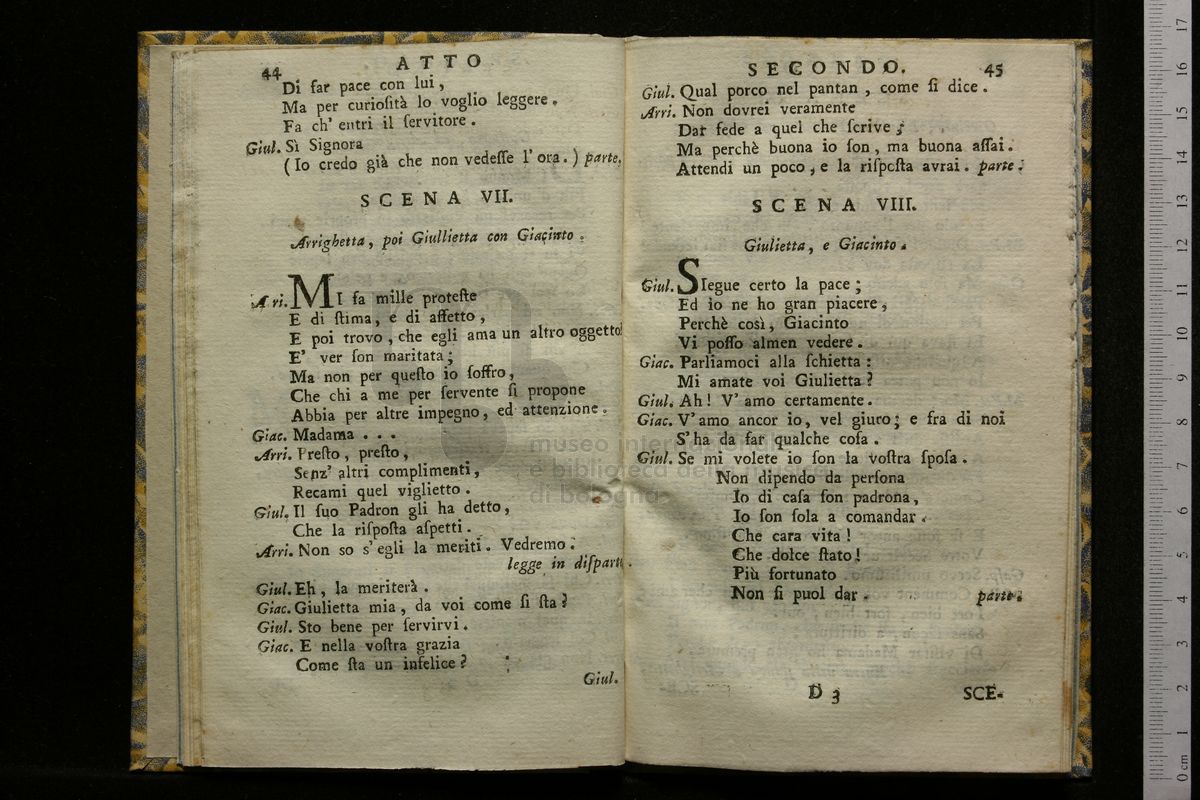 44
ATTO
Di far pace con lui,
Ma per curioſità lo voglio leggere.
Fa ch' entri il ſervitore.
Giul. Sì Signora
(Io credo già che non vedeſſe l' ora.) parte.
SCENA VII.
Arrighetta, poi Giullietta con Giacinto.
Arri. MI fa mille proteſte
E di ſtima, e di affetto,
E poi trovo, che egli ama un altro oggetto!
E' ver ſon maritata;
Ma non per queſto io ſoffro,
Che chi a me per ſervente ſi propone
Abbia per altre impegno, ed attenzione.
Giac. Madama . . .
Arri. Preſto, preſto,
Senz' altri complimenti,
Recami quel viglietto.
Giul. Il ſuo Padron gli ha detto,
Che la riſpoſta aſpetti.
Arri. Non so s' egli la meriti. Vedremo.
legge in diſparte.
Giul. Eh, la meriterà.
Giac. Giulietta mia, da voi come ſi ſta?
Giul. Sto bene per ſervirvi.
Giac. E nella voſtra grazia
Come ſta un infelice?
Giul.
SECONDO.
45
Giul. Qual porco nel pantan, come ſi dice.
Arri. Non dovrei veramente
Dar fede a quel che ſcrive;
Ma perchè buona io ſon, ma buona aſſai.
Attendi un poco, e la riſpoſta avrai. parte.
SCENA VIII.
Giulietta, e Giacinto.
Giul. SIegue certo la pace;
Ed io ne ho gran piacere,
Perchè così, Giacinto
Vi poſſo almen vedere.
Giac. Parliamoci alla ſchietta:
Mi amate voi Giulietta?
Giul. Ah! V' amo certamente.
Giac. V' amo ancor io, vel giuro; e fra di noi
S' ha da far qualche coſa.
Giul. Se mi volete io ſon la voſtra ſpoſa.
Non dipendo da perſona
Io di caſa ſon padrona,
Io ſon ſola a comandar.
Che cara vita!
Che dolce ſtato!
Più fortunato
Non ſi puol dar. parte.
D 3
SCE-
museo internazionale
e biblioteca della musica
di bologna
17
16
15
14
13
12
11
10
9
8
7
6
5
4
3
2
1
0 cm